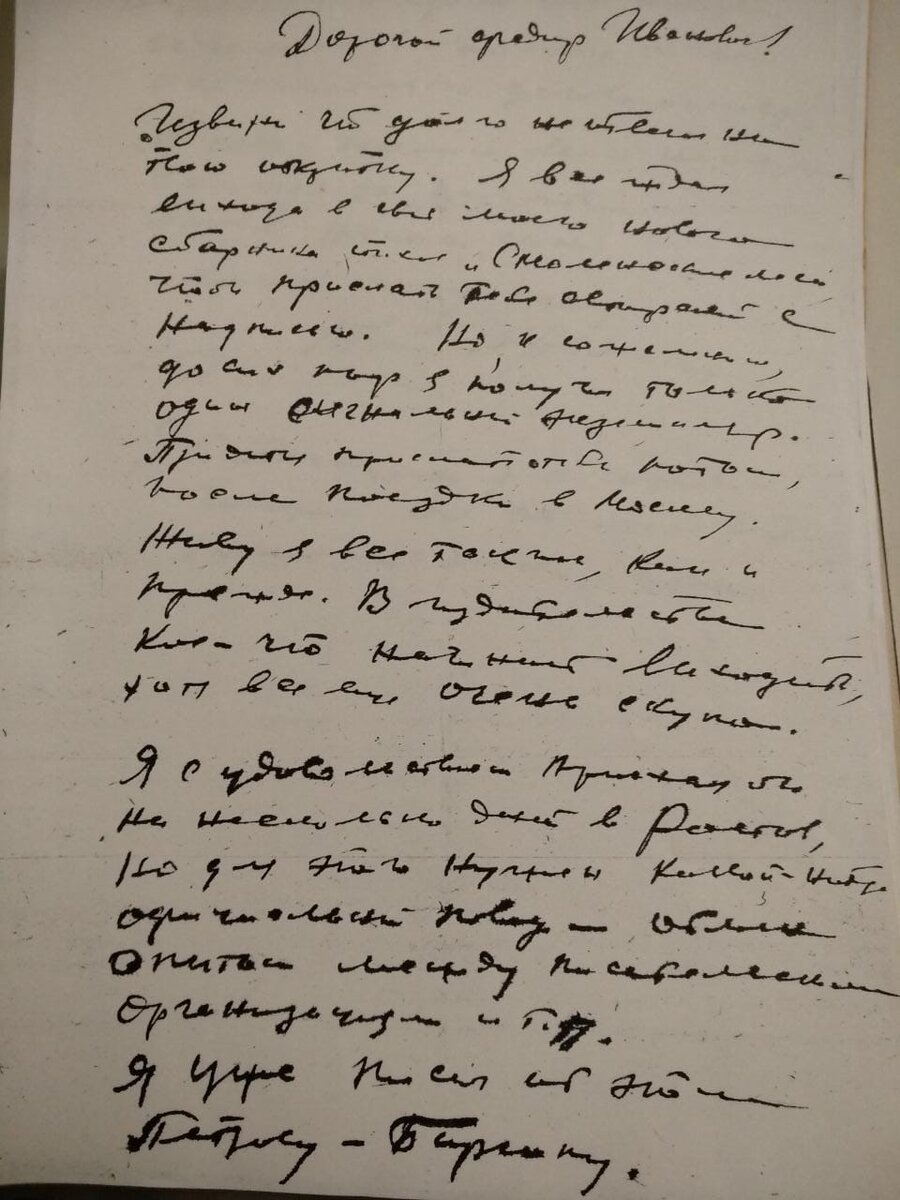 Дорогой Федор Иванович!
Извини что долго не ответил на
твою открытку. Я все ждал
выхода в свет моего нового
сборника стихов „Смоленские леса
чтобы прислать тебе с
надписью. Но, к сожалению,
до сих пор я получил только
один сигнальный экземпляр.
Придется прислать тебе потом,
после поездки в Москву.
Живу я все так же, как и
прежде. В издательстве
кое-что начинает выходить,
хотя все еще очень скупо.
Я с удовольствием приехал бы
на несколько дней в Ростов,
но для этого нужен какой-нибудь
официальный повод – обмен
опытом между писательскими
организациями и т.п.
Я уже писал об этом
Петрову-Бирюку.